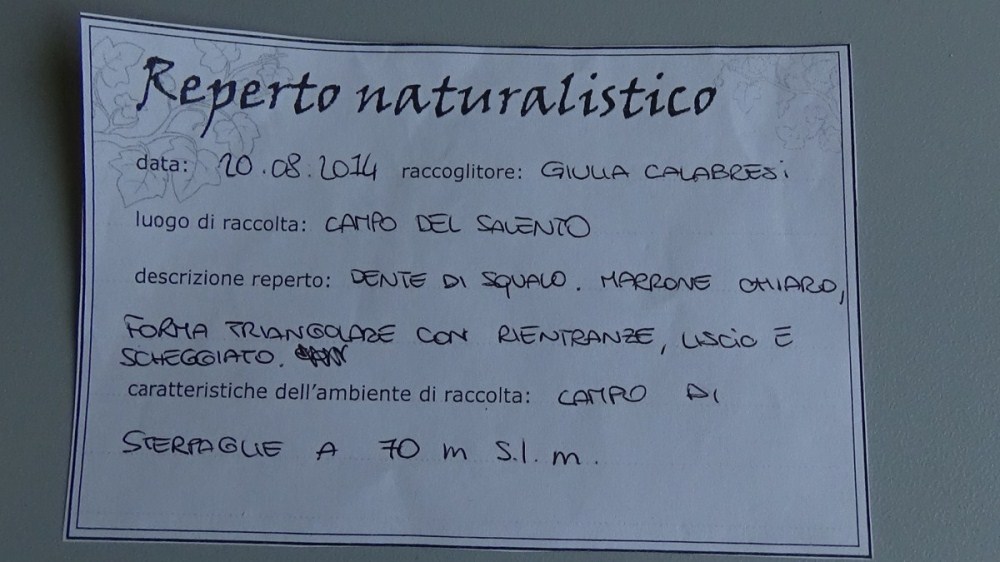 Reperto naturalistico
data: 20.08.2014 raccoglitore: GIULIA CALABRESi
luogo di raccolta: CAMPO DEL SALENTO
descrizione reperto: DENTE DI SQUALO. MARRONE CHIARO,
FORMA TRIANGOLARE CON RIENTRANZE, LISCIO E
SCHEGGIATO.
caratteristiche dell'ambiente di raccolta: CAMPO DI
STERPAGLIE A 70 m s.l.m.